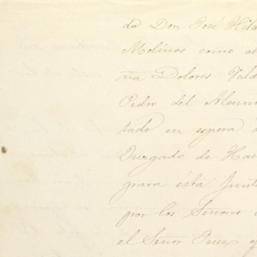 da Don José Hila
Molinos como a
ña Dolores Vald
Pedro del
tado en espera
Juzgado de Hac
para ésta Junta
por los Señores
el Señor Juez y